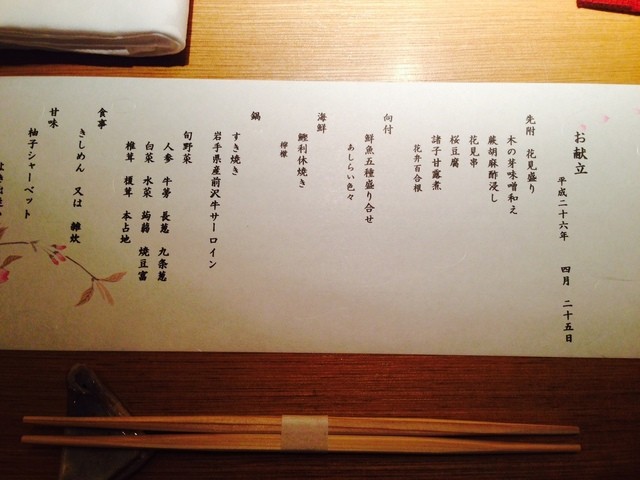 お献立
平成二十六年 四月 二十五日
先附 花見盛り
木の芽味噌和え
蕨胡麻酢浸し
花見串
桜豆腐
諸子甘露煮
花弁百合根
向付
鮮魚五種盛り合せ
あしらい色々
海鮮
鰹利休焼き
檸檬
鍋
すき焼き
岩手県産前沢牛サーロイン
旬野菜
人参 牛蒡 長葱 九条葱
白菜 水菜 蒟蒻 焼豆富
椎茸 榎茸 本占地
食事
きしめん 又は 雑炊
甘味
柚子シャーベット